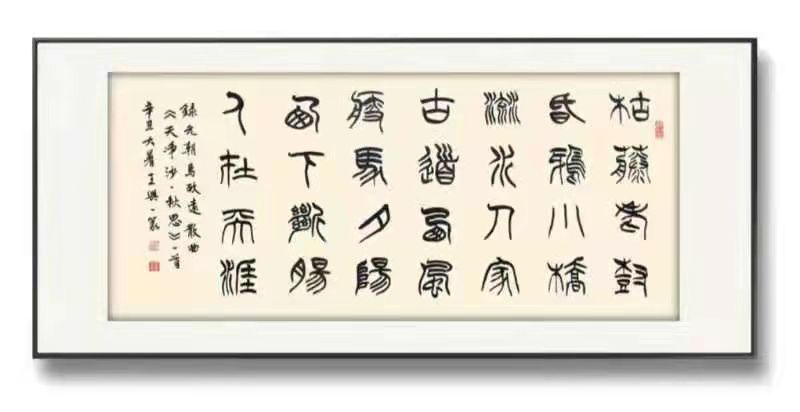 枯藤老樹
昏鴉小橋
流水人家
古道西風
瘦馬夕陽
西下斷腸
人在天涯
錄元朝馬致遠散曲
《天净沙·秋思》一首
辛丑大暑王興一篆